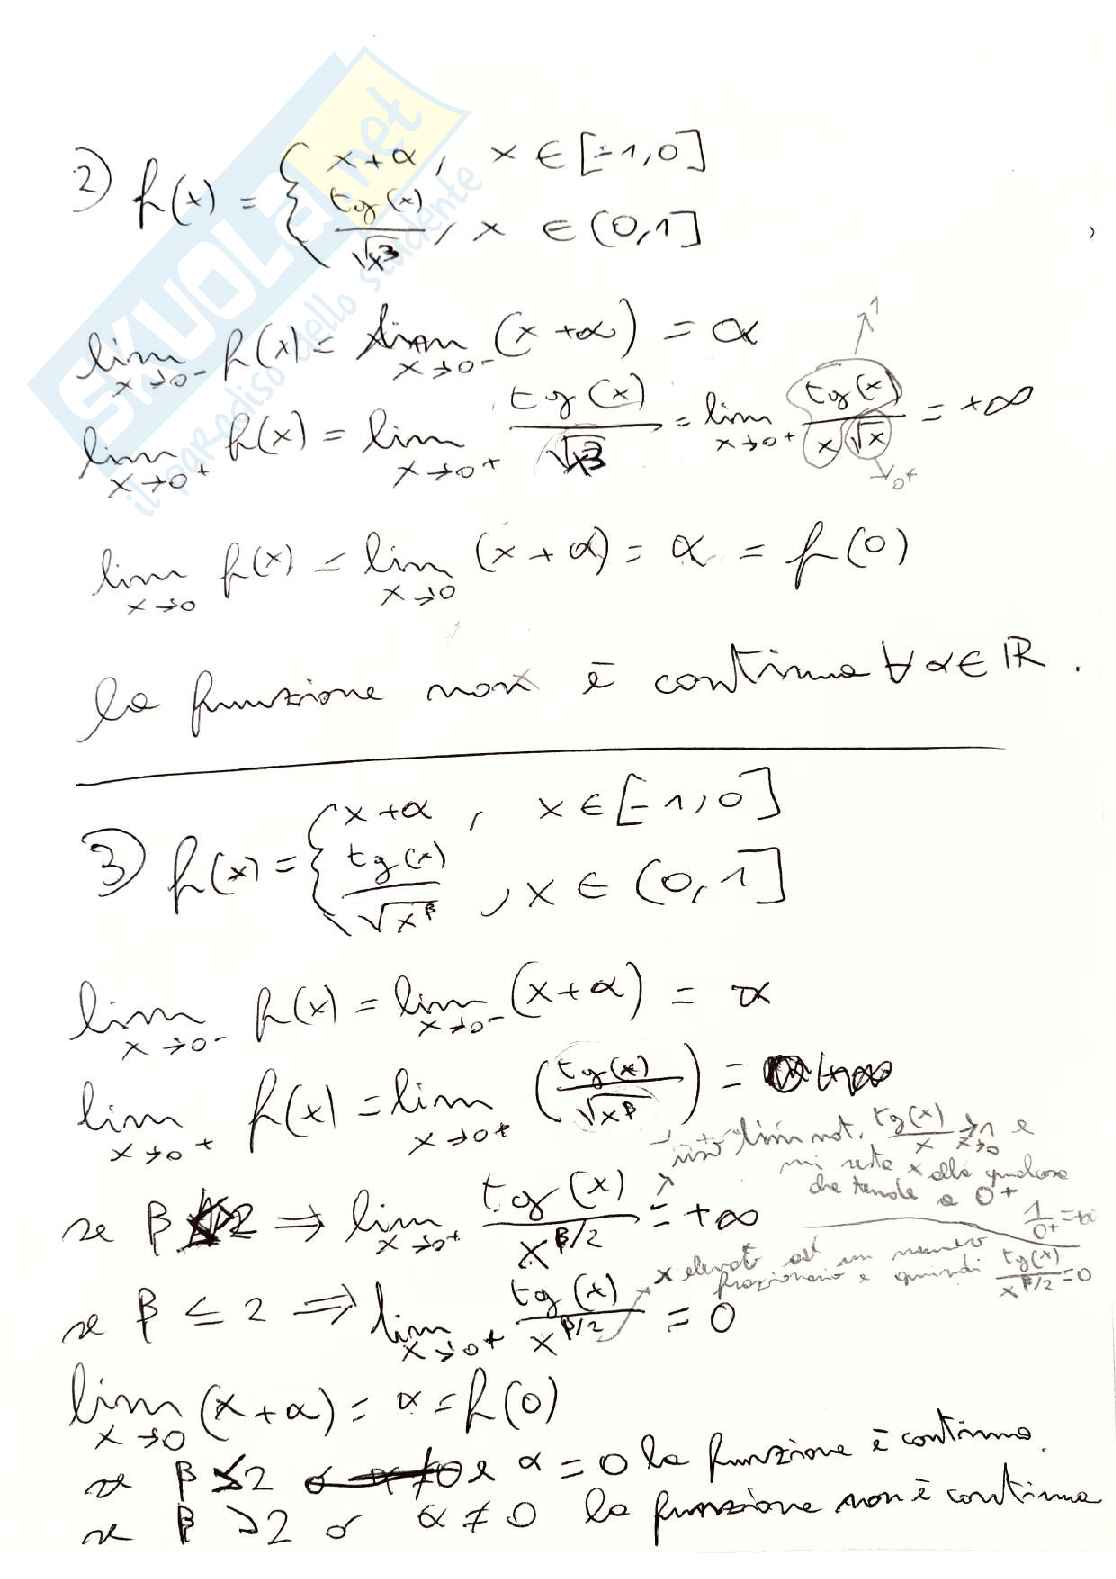 SKUOLA.net
il paradiso dello studente
2) f(x) = { x+α, x ∈ [-1,0]
tg(x)/√x³, x ∈ (0,1]
lim x→0⁻ f(x) = lim x→0⁻ (x+α) = α
lim x→0⁺ f(x) = lim x→0⁺ tg(x)/√x³ = lim x→0⁺ tg(x)/(x√x) = +∞
→1
→0⁺
lim x→0 f(x) = lim x→0 (x+α) = α = f(0)
la funzione non è continua ∀ α ∈ ℝ.
3) f(x) = { x+α, x ∈ [-1,0]
tg(x)/√x^β, x ∈ (0,1]
lim x→0⁻ f(x) = lim x→0⁻ (x+α) = α
lim x→0⁺ f(x) = lim x→0⁺ (tg(x)/√x^β) =
lim not. tg(x)/x →1 x→0 e
mi resta x alla qualcosa
che tende a 0⁺ 1/0⁺=+∞
se β 2 ⇒ lim x→0⁺ tg(x)/x^(β/2) = +∞
x elevato ad un numero
frazionario e quindi tg(x)/x^(β/2) = 0
se β ≤ 2 ⇒ lim x→0⁺ tg(x)/x^(β/2) = 0
lim x→0 (x+α) = α = f(0)
se β ≤ 2 e α = 0 la funzione è continua.
se β > 2 o α ≠ 0 la funzione non è continua